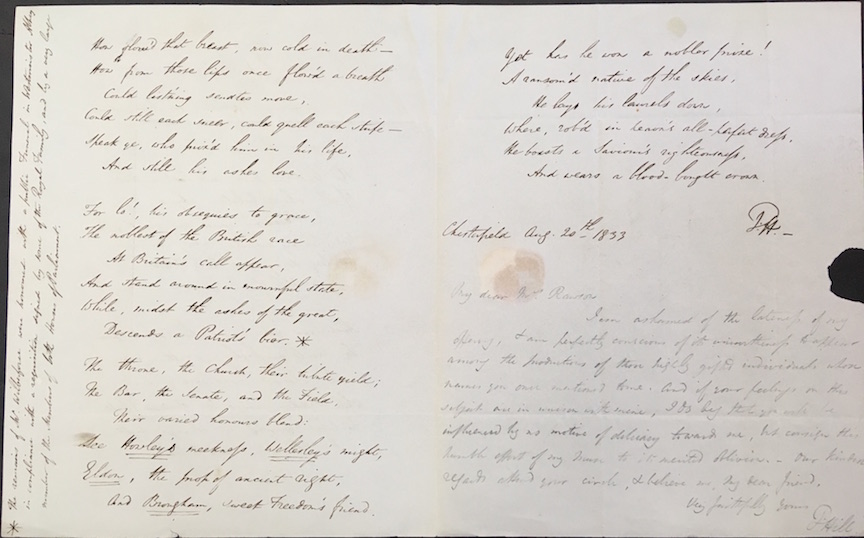 How glow'd that breast, now cold in death —
How from those lips once flow'd a breath
Could list'ning senates move,
Could still each sneer, could quell each strife —
Speak ye, who priz'd him in his life,
And still his ashes love.
For lo!, his obsequies to grace,
The noblest of the British race
At Britain's call appear,
And stand around in mournful state,
While, midst the ashes of the great,
Descends a Patriot's bier. *
The throne, the Church, their tribute yield;
The Bar, the Senate, and the Field,
Their varied honours blend:
See Howley's meekness, Wellesley's might,
Eldon, the prop of ancient right,
And Brougham, sweet Freedom's friend.
* The remains of Mr Wilberforce were honoured with a public Funeral in Westminster Abbey
in compliance with a requisition signed by some of the Royal Family, and by a very large
number of the Members of both Houses of Parliament.
Yet has he won a nobler prize!
A ransom'd native of the skies,
He lays his laurels down,
Where, rob'd in heaven's all-perfect dress,
He boasts a Saviour's righteousness,
And wears a blood-bought crown.
TH. —
Chesterfield Aug. 20th 1833
My dear Mrs Rawson
I am ashamed of the lateness of my
offering, & am perfectly conscious of its unworthiness to appear
among the productions of those highly gifted individuals whose
names you once mentioned to me. And if your feelings on this
subject are in unison with mine, I do beg that you will be
influenced by no motive of delicacy toward me, but consign this
humble effort of my Muse to its merited oblivion. — Our kindest
regards attend your circle, & believe me, my dear friend,
Very faithfully yours
THill